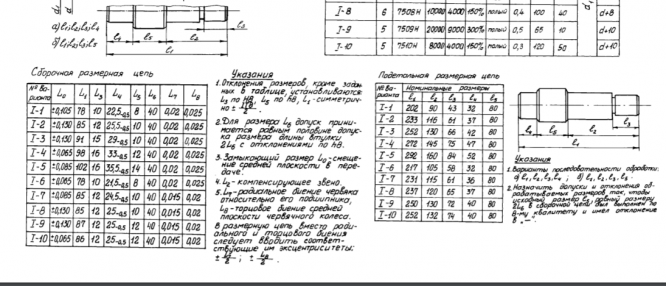 a) l₁l₂l₃l₄
б) l₁l₂l₃l₄
l₄ l₃ l₂
l₁
I-8 6 7508Н 10000 4000 150% полый 0,4 100 40 d+8
I-9 5 20000 9000 300% полый 0,5 65 10 d+10
I-10 5 7510Н 8000 4000 150% полый 0,3 120 50 d+10
Сборочная размерная цепь
№ Варианта L₀ L₁ L₃ L₄ L₅ L₆ L₇ L₈
I-1 ±0,105 78 10 22,5 8 40 0,02 0,025
I-2 ±0,130 85 12 25,5 10 40 0,02 0,025
I-3 ±0,130 91 15 29 10 40 0,02 0,025
I-4 ±0,065 98 16 33 12 40 0,02 0,025
I-5 ±0,085 102 16 14 40 0,02 0,025
I-6 ±0,085 78 10 21,5 8 40 0,02 0,025
I-7 ±0,085 85 12 24,5 10 40 0,015 0,02
I-8 ±0,130 85 12 25 10 40 0,015 0,02
I-9 ±0,130 87 12 25 12 40 0,015 0,02
I-10 ±0,065 86 12 25 12 40 0,015 0,02
Указания
1. Отклонения размеров, кроме заданных
в таблице, устанавливаются
L₃ по L₅ по h8, L₁ - симметрично
±
2. Для размера L₆ допуск принимается
равным половине допуска
размера длины втулки
2L₆ с отклонениями по h8.
3. Замыкающий размер L₀ - смещение
средней плоскости в передаче.
4. L₂ - компенсирующее звено
5. L₇ - радиальное биение червяка
относительно его подшипника,
L₈ - торцовое биение средней
плоскости червячного колеса.
В размерную цепь вместо радиального
и торцового биения
следует вводить соответствующие
им эксцентриситеты:
± L₇/2 ; ± L₈/2
Подетальная размерная цепь
№ Варианта Номинальные размеры
l₁ l₂ l₃ l₄ l₅
I-1 202 90 43 32 80
I-2 233 116 61 37 80
I-3 252 130 66 42 80
I-4 272 145 75 47 80
I-5 292 160 84 52 80
I-6 217 105 58 32 80
I-7 231 115 61 36 80
I-8 237 120 65 37 80
I-9 250 130 72 40 80
I-10 252 132 74 40 80
l₄ l₅ l₂
l₁
Указания
1. Варианты последовательности обработки:
а) l₁, l₂, l₃, l₄ ; б)
2. Назначить допуски и отклонения обрабатываемых
размеров так, чтобы
исходный размер равный размеру
в сборочной цепи был выполнен по
8-му квалитету и имел отклонение
в „-”.